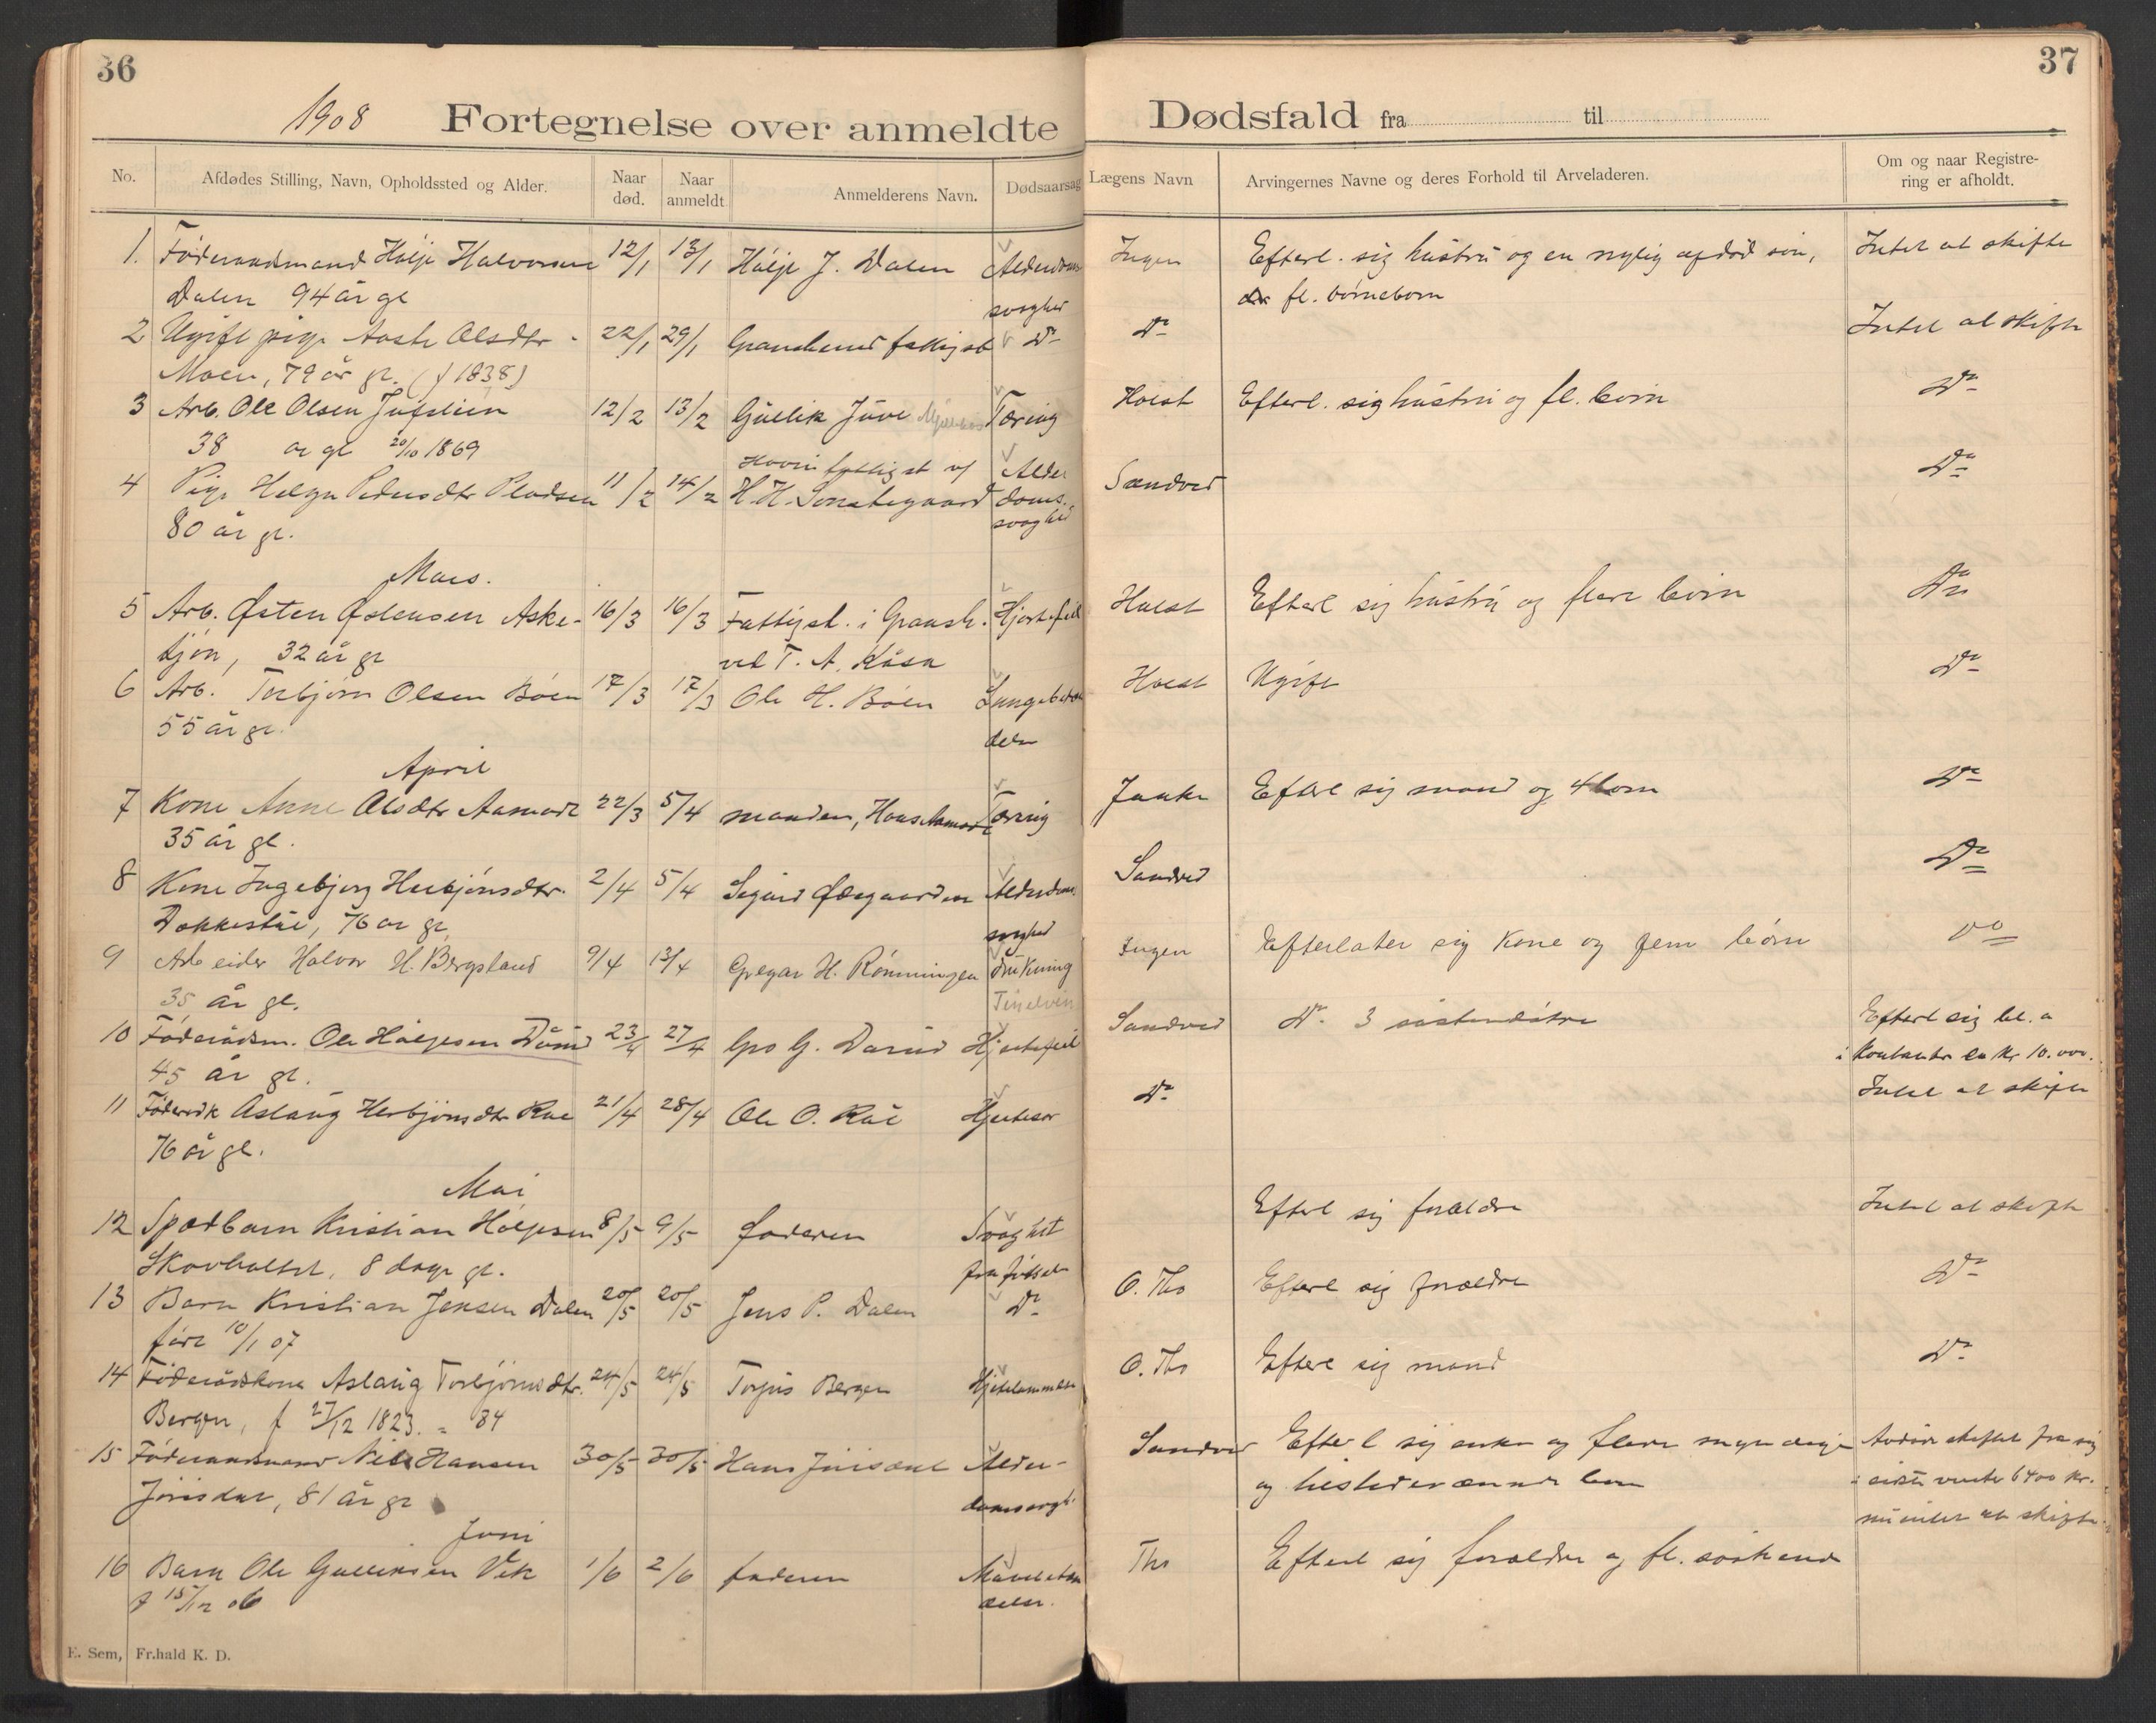 36
1908 Fortegnelse over anmeldte
No. Afdødes Stilling, Navn, Opholdssted og Alder. Naar død. Naar anmeldt Anmelderens Navn. Dødsaarsag
1. Føderaadsmand Hølje Halvorsen 12/1 13/1 Hølje J. Dalen Alderdoms
Dalen 94 år gl svaghed
2 Ugift pige Aaste Olsdtr 22/1 29/1 Gransherred fattigst Do
Moen, 79 år gl. (f 1838)
3 Arb. Ole Olsen 12/2 13/2 Gullik Juve Tæring
38 år gl 20/10 1869
Hovin fattigst v/ Alder
4 Pige Helga Pedersdtr Pladsen 11/2 14/2 H. H. Sønstegaard doms-
80 år gl. svaghed
Mars.
5 Arb. Østen Østensen Aske- 16/3 16/3 Fattigst. i Gransh. Hjertefeil
tjøn, 32 år gl ved T. A. Kåsa
6 Arb. Torbjørn Olsen Bøen 17/3 17/3 Ole H. Bøen Lungebetæn
55 år gl. delse
April
7 Kone Anne Olsdtr Aamodt 22/3 5/4 manden, Hans Aamodt Tæring
35 år gl.
8 Kone Ingebjørg Herbjørnsdtr. 2/4 5/4 Sigurd Øvregaarden Alderdoms
76 år gl. svaghed
9 Arbeider Halvor H. Bergsland 9/4 13/4 Gregar H. Rønningen Drukning
35 år gl. Tinelven
10 Føderådsm. Ole Høljesen 23/4 27/4 Gro G. Hjertefeil
45 år gl.
11 Aslaug Herbjørnsdtr Rue 21/4 28/4 Ole O. Rue
76 år gl.
Mai
12 Spædbarn Kristian Høljesen 8/5 9/5 faderen Svaghet
8 dage gl. fra fødsel
13 Barn Kristian Jensen Dalen 20/5 20/5 Jens P. Dalen Do
født 10/1 07
14 Føderådskone Aslaug Torbjørnsdtr. 24/5 24/5 Torjus Bergen Hjertelammelse
Bergen, f 27/12 1823. = 84
15 Føderaadsmand Nils Hansen 30/5 30/5 Hans Jørisdal Alder-
Jørisdal, 81 år gl domssvagh.
Juni
16 Barn Ole Gulliksen Vik 1/6 2/6 faderen
f 15/12 06
E. Sem, Fr.hald K. D.
37
Dødsfald fra til
Lægens Navn Arvingernes Navne og deres Forhold til Arveladeren. Om og naar Registre-
ring er afholdt.
Ingen Efterl. sig hustru og en nylig afdød søn, Intet at skifte
fl. børnebørn
Do Intet at skifte
Holst Efterl. sig hustru og fl. børn Do
Sandved Do
Holst Efterl sig hustru og flere børn Do
Holst Ugift Do
Efterl sig mand og 4 børn Do
Sandved Do
Ingen Efterlater sig Kone og fem børn Do
Sandved Do 3 søsterdøtre Efterl sig bl. a
i Kontanter ca Kr 10.000.
Do Intet at skifte
Efterl sig forældre Intet at skifte
O. Tho Efterl sig forældre Do
O. Tho Efterl sig mand Do
Sandved Efterl sig enke og flere myndige
og børn 6400 kr.
nu intet at skifte
Tho Efterl sig forældre og fl. søskende